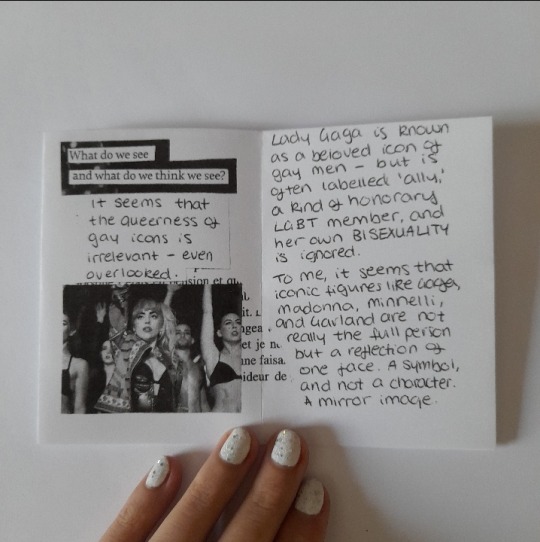 What do we see
and what do we think we see?
it seems that
the queerness of
gay icons is
irrelevant - even
overlooked.
sion et qu
it.
agea
et je n
ne faisa
ideur de
Lady Gaga is known
as a beloved icon of
gay men - but is
often labelled 'ally,'
a kind of honorary
LGBT member, and
her own BISEXUALITY
is ignored.
To me, it seems that
iconic figures like Gaga,
madonna, minnelli,
and Garland are not
really the full person
but a reflection of
one face. A symbol,
and not a character.
A mirror image.